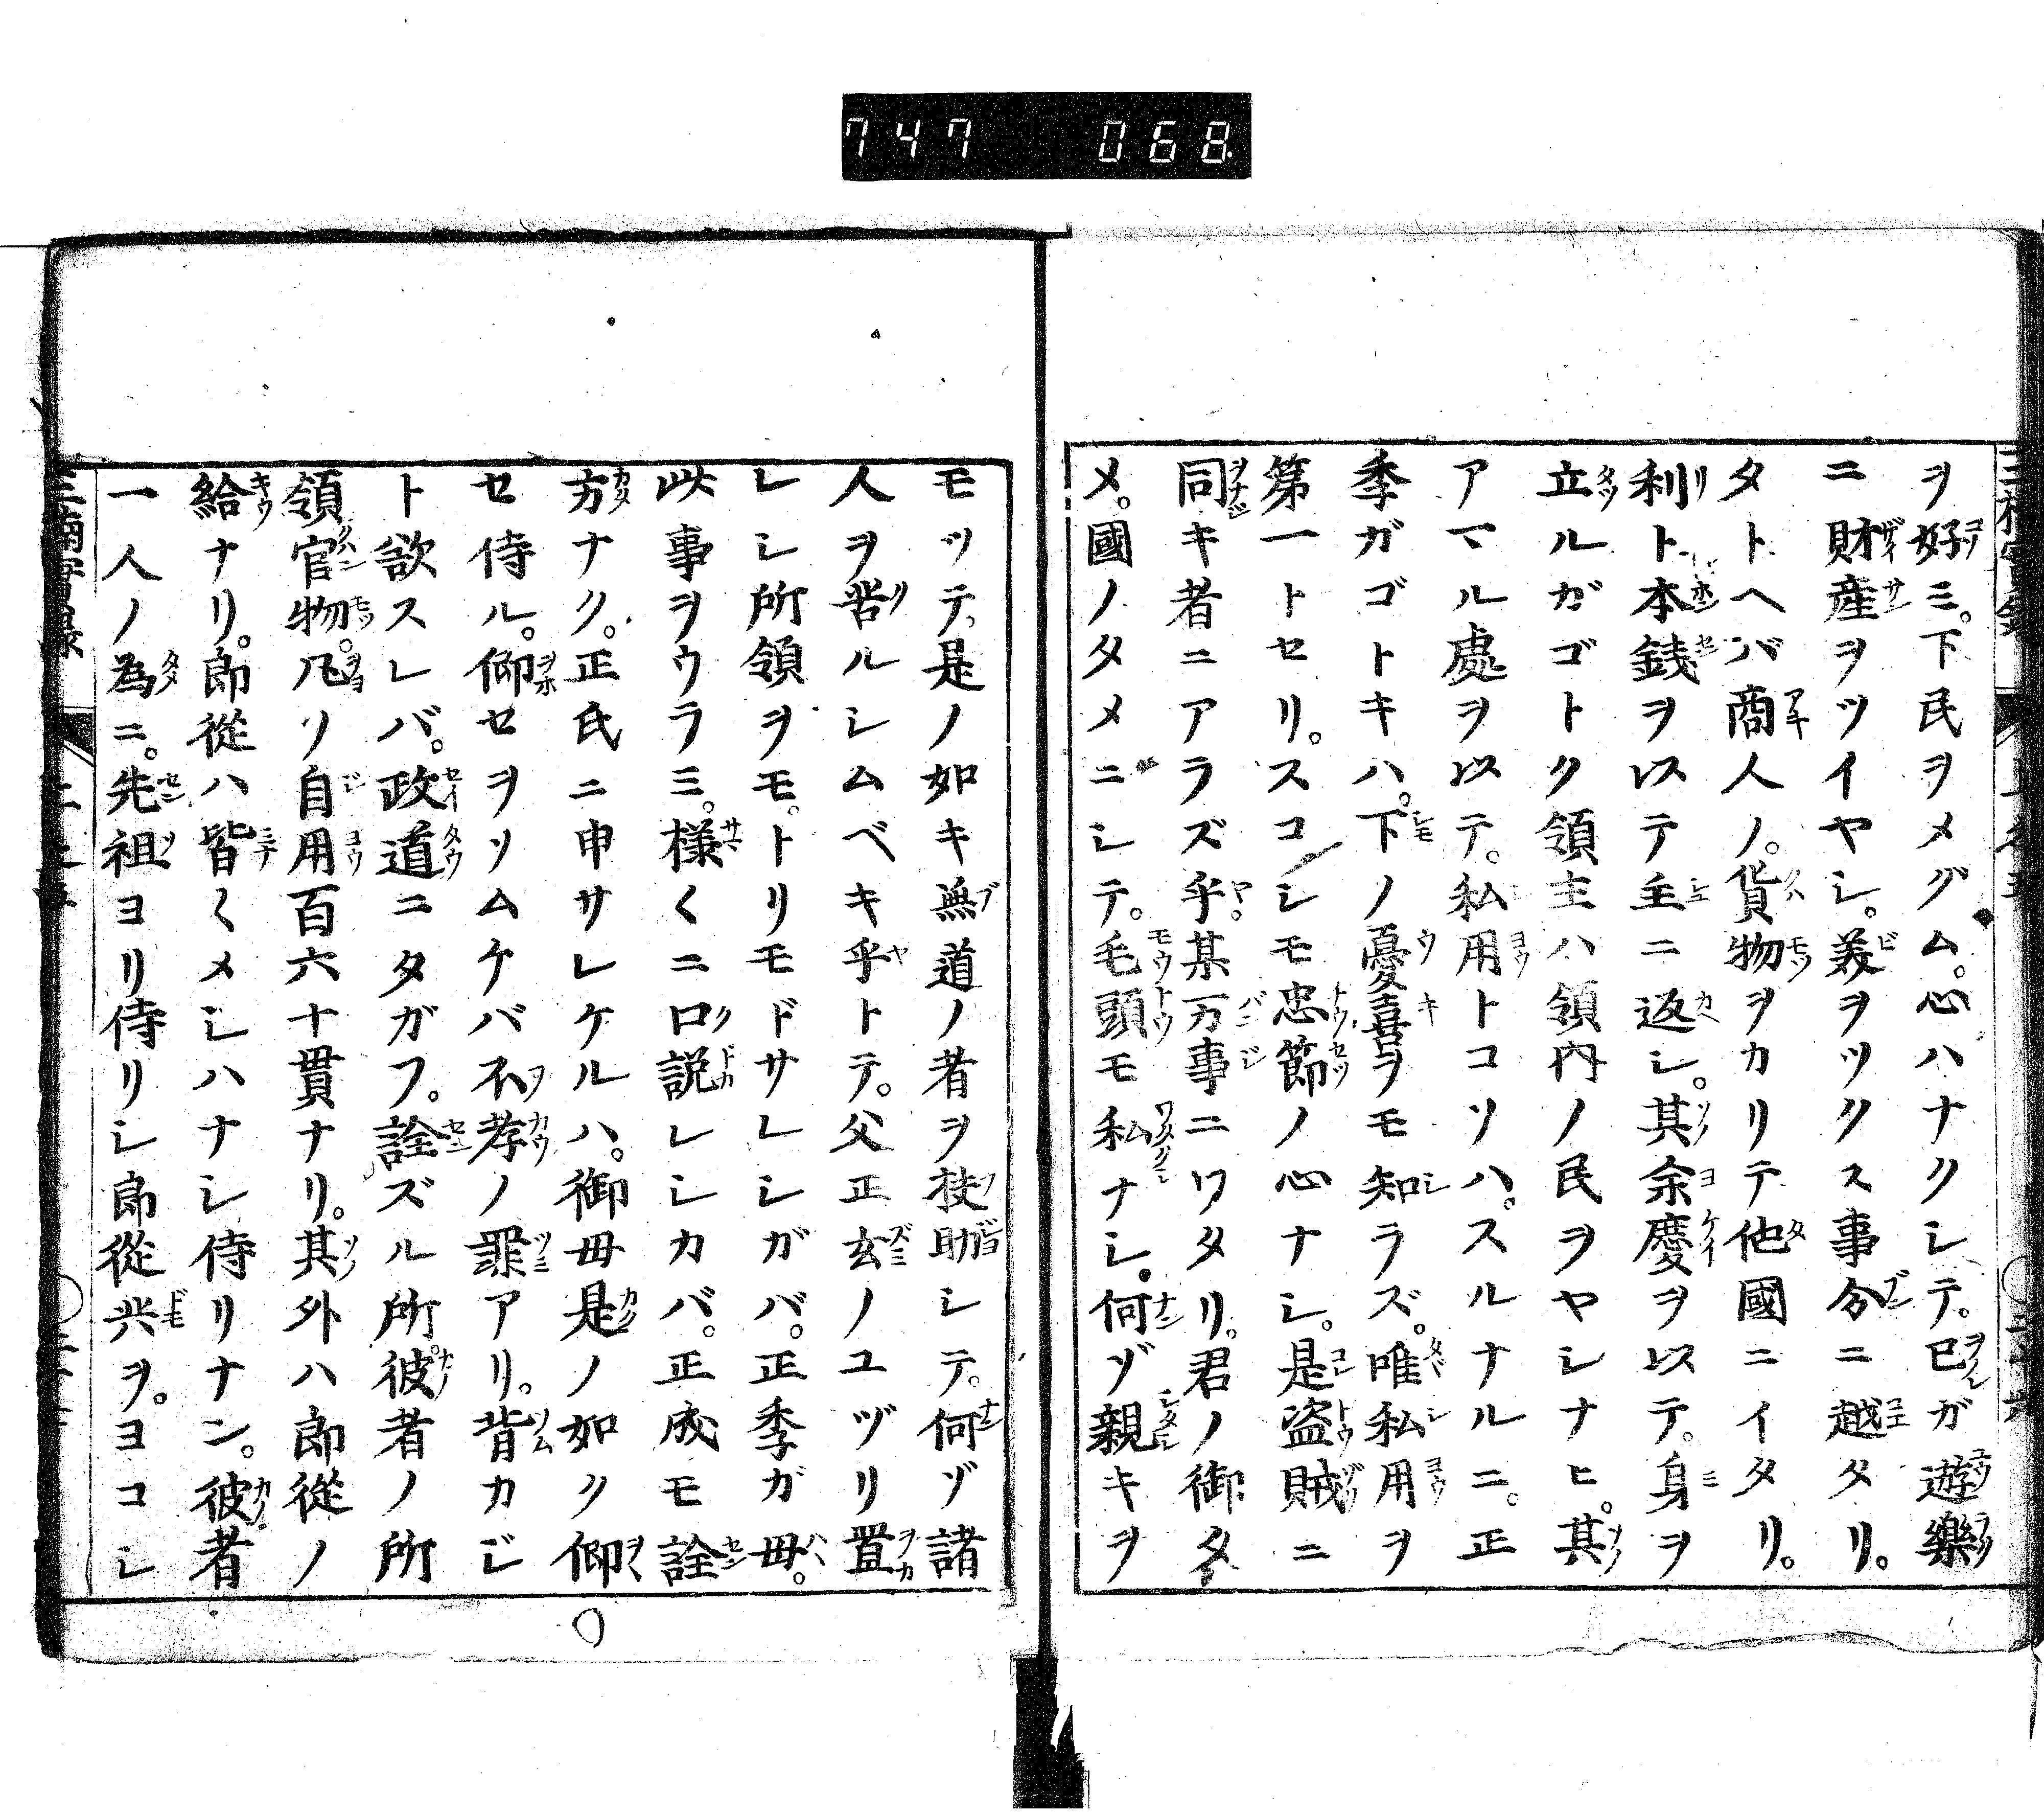 747 068
ヲ好ミ。下民ヲメグム。心ハナクシテ。已ガ遊樂
ニ財産ヲツイヤシ。美ヲツクス事分ニ越タリ。
タトヘバ商人ノ。貨物ヲカリテ他國ニイタリ。
利ト本銭ヲ以テ主ニ返シ。其余慶ヲ以テ。身ヲ
立ルガゴトク領主ハ領内ノ民ヲヤシナヒ。其
アマル處ヲ以テ。私用トコソハ。スルナルニ。正
季ガゴトキハ。下ノ憂喜ヲモ知ラズ。唯私用ヲ
第一トセリ。スコシモ忠節ノ心ナシ。是盗賊ニ
同キ者ニアラズ乎。某万事ニワタリ。君ノ御タ
メ。國ノタメニシテ。毛頭モ私ナシ。何ゾ親キヲ
モッテ。是ノ如キ無道ノ者ヲ扶助シテ。何ゾ諸
人ヲ苦ルシムベキ乎トテ。父正玄ノユヅリ置
レシ所領ヲモ。トリモドサレシガバ。正季ガ母。
此事ヲウラミ。様〱ニ口説レシカバ。正成モ詮
方ナク。正氏ニ申サレケルハ。御母是ノ如ク仰
セ侍ル。仰セヲソムケバ不孝ノ罪アリ。背カジ
ト欲スレバ。政道ニタガフ。詮ズル所。彼者ノ所
領官物。凡ソ自用百六十貫ナリ。其外ハ郎從ノ
給ナリ。郎從ハ皆〱メシハナシ侍リナン。彼者
一人ノ為ニ。先祖ヨリ侍リシ郎從共ヲ。ヨコシ